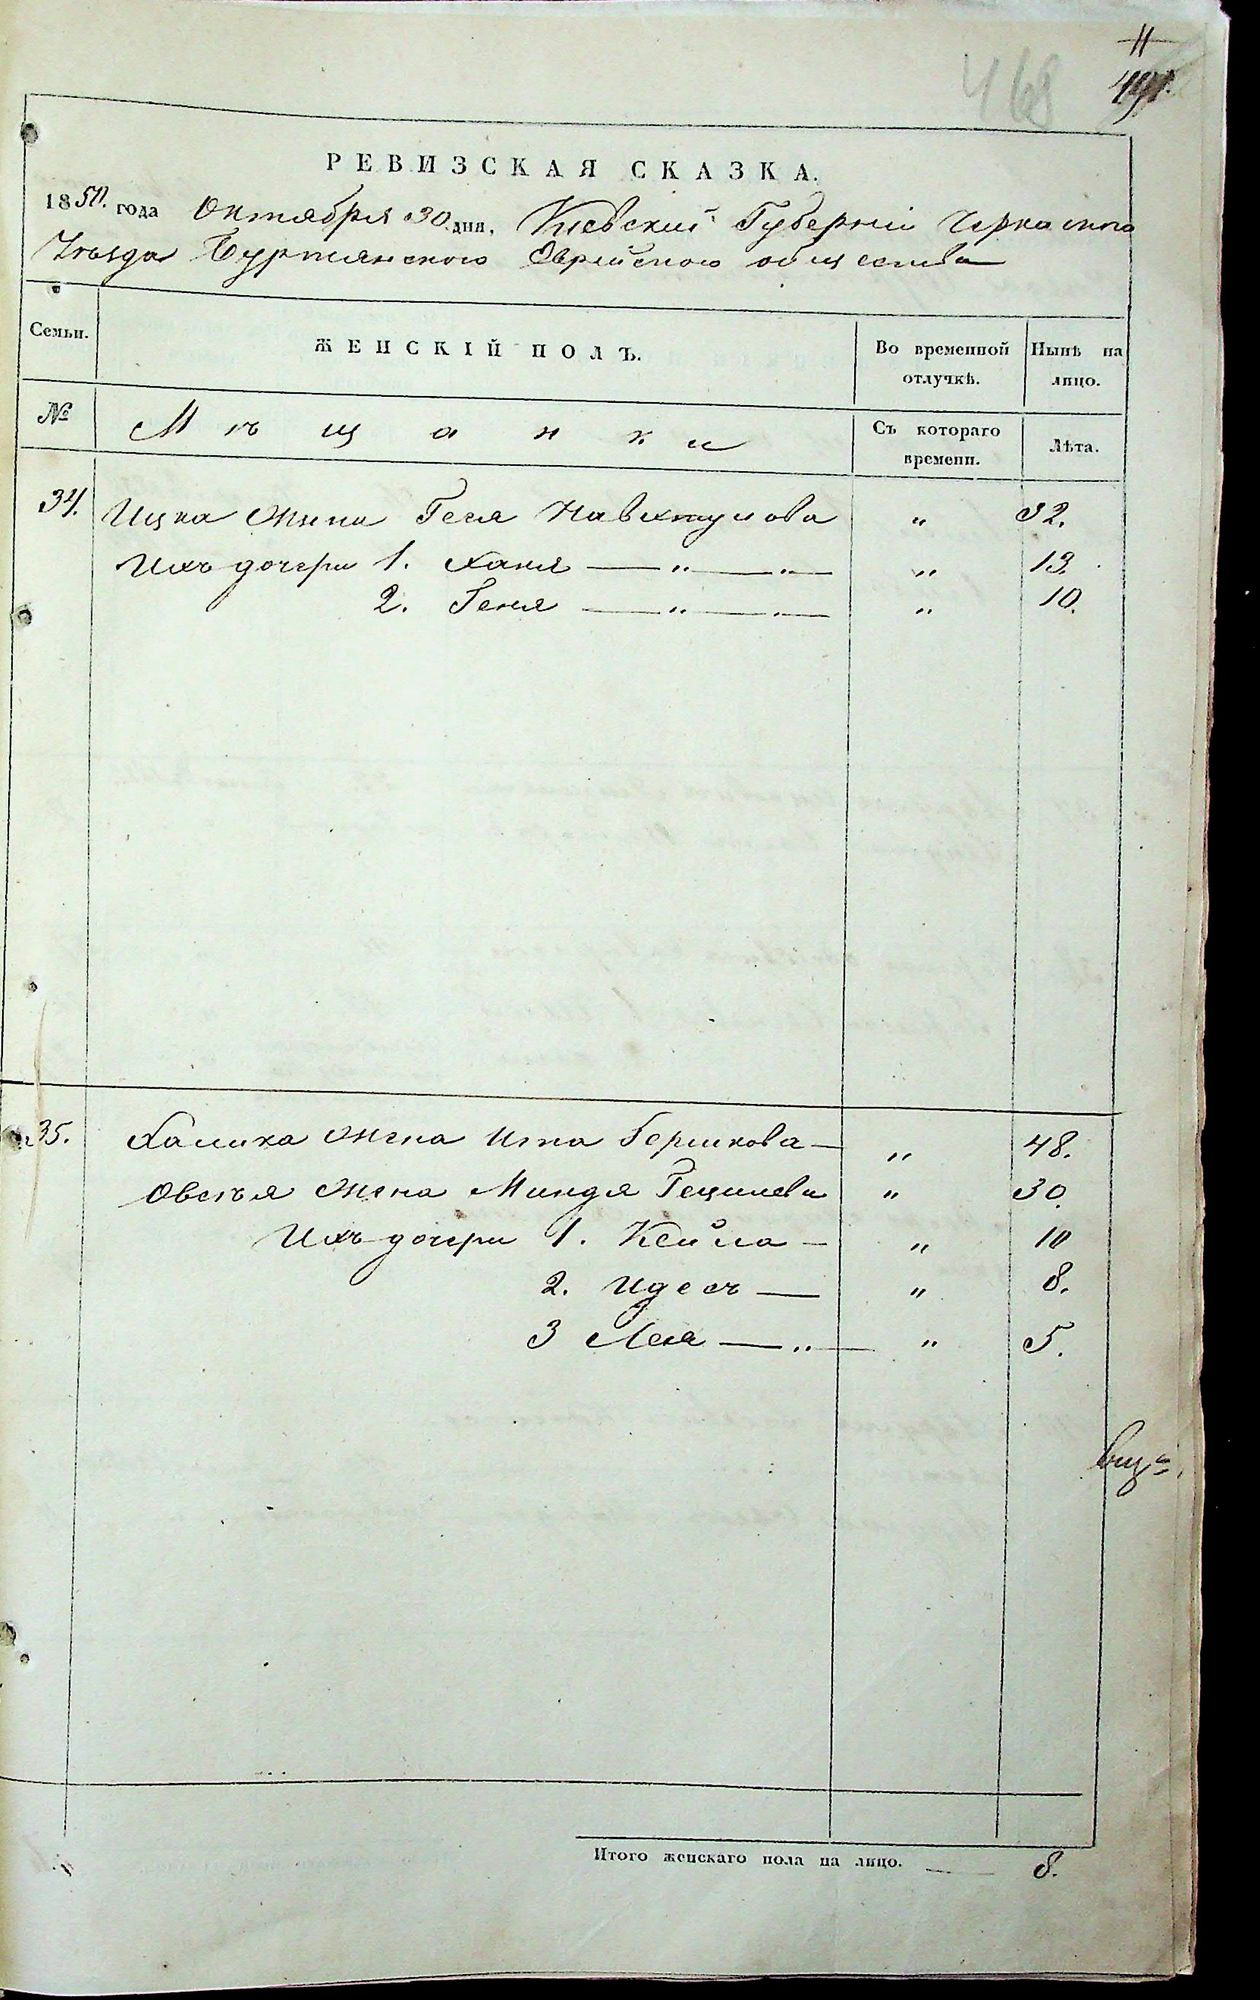 11
468
РЕВИЗСКАЯ СКАЗКА.
1850. года Октября 30 дня, Киевский Губернии Черкаского
Уѣзда Буртянского Еврейского общества
Семьи.
ЖЕНСКІЙ ПОЛЪ.
Во временной отлучкѣ.
Нынѣ на лицо.
№
Мѣщанки
Съ котораго времени.
Лѣта.
34. Ицка жена Геня Навхтулова " 32.
Ихъ дочери 1. Ханя — " — " — " 13.
2. Геня — " — " — " 10.
35. Хаима жена Ита Гершкова — " 48.
Овсѣя жена Миндя Гецилева " 30.
Ихъ дочери 1. Кейла — " 10
2. Идесъ — " 8.
3 Лея — " — " 5.
Итого женскаго пола на лицо. — 8.